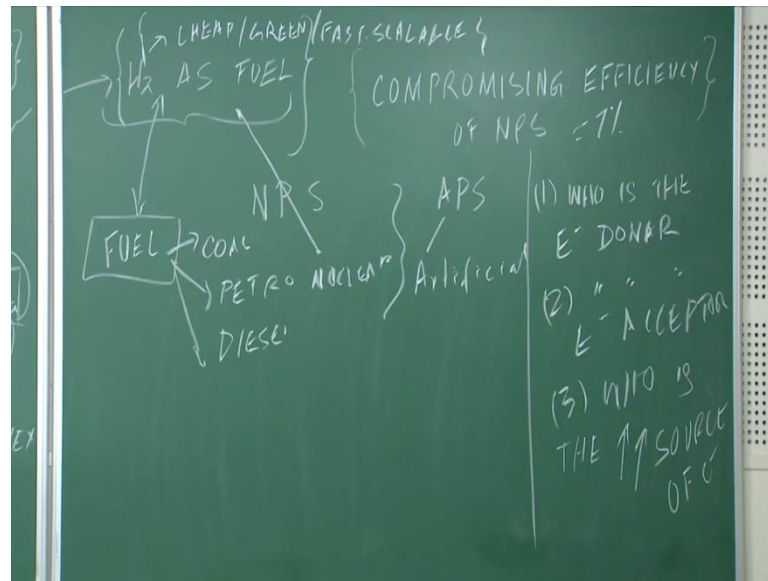 CHEAP/GREEN/FAST.SCALABLE
H2 AS FUEL
COMPROMISING EFFICIENCY
OF NPS = 1%
NPS
APS
FUEL
COAL
PETRO NUCLEAR
DIESEL
Artificial
(1) WHO IS THE
E- DONAR
(2) " " "
E- ACCEPTOR
(3) WHO IS
THE ↑↑ SOURCE
OF e-
EX